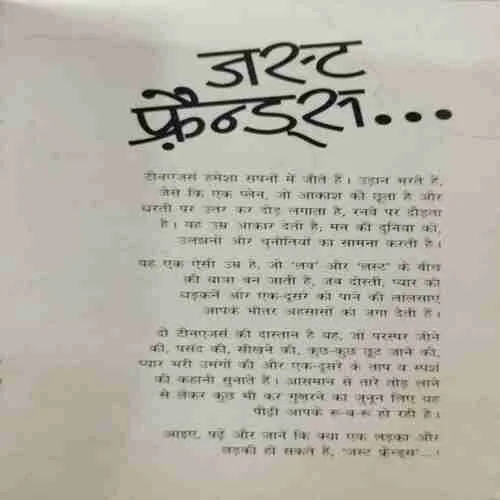 जस्ट
फ़्रैन्ड्स...
टीनएजर्स हमेशा सपनों में जीते हैं। उड़ान भरते हैं,
जैसे कि एक प्लेन, जो आकाश को छूता है और
धरती पर उतर कर दौड़ लगाता है, रनवे पर दौड़ता
है। यह उम्र आकार देती है; मन की दुनिया को,
उलझनों और चुनौतियों का सामना करती है।
यह एक ऐसी उम्र है, जो 'लव' और 'लस्ट' के बीच
की यात्रा बन जाती है, जब दोस्ती, प्यार की
धड़कनें और एक-दूसरे को पाने की लालसाएं
आपके भीतर अहसासों को जगा देती हैं।
दो टीनएजर्स की दास्तान है यह, जो परस्पर जीने
की, पसंद की, सीखने की, कुछ-कुछ छूट जाने की,
प्यार भरी उमंगों की और एक-दूसरे के ताप व स्पर्श
की कहानी सुनाते हैं। आसमान से तारे तोड़ लाने
से लेकर कुछ भी कर गुज़रने का जुनून लिए यह
पीढ़ी आपके रू-ब-रू हो रही है।
आइए, पढ़ें और जानें कि क्या एक लड़का और
लड़की हो सकते हैं, 'जस्ट फ्रेन्ड्स'...!